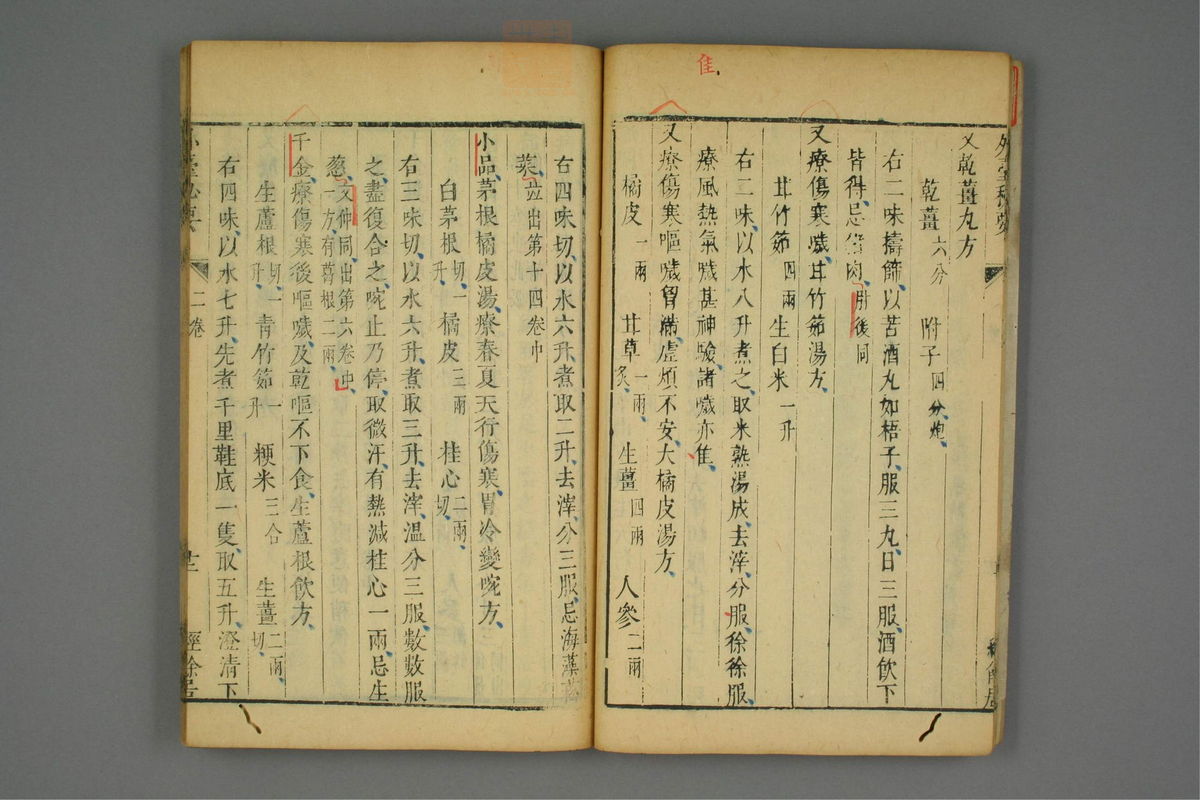 隹
外臺秘要
又乾薑丸方
乾薑六分 附子四分炮
右二味擣篩以苦酒丸如梧子服三丸日三服酒飲下
皆得忌猪肉肘後同
又療傷寒噦甘竹茹湯方
甘竹茹四兩 生白米一升
右二味以水八升煮之取米熟湯成去滓分服徐徐服
療風熱氣噦甚神驗諸噦亦隹
又療傷寒嘔噦胷滿虛煩不安大橘皮湯方
橘皮一兩 甘草一兩炙 生薑四兩 人參二兩
右四味切以水六升煮取二升去滓分三服忌海藻菘
菜並出第十四卷中
小品茅根橘皮湯療春夏天行傷寒胃冷變啘方
白茅根切一升 橘皮三兩 桂心二兩切
右三味切以水六升煮取三升去滓溫分三服數數服
之盡復合之啘止乃停取微汗有熱減桂心一兩忌生
葱文仲同出第六卷中一方有葛根二兩
千金療傷寒後嘔噦及乾嘔不下食生蘆根飲方
生蘆根切一升 青竹茹一升 粳米三合 生薑二兩切
右四味以水七升先煮千里鞋底一隻取五升澄清下
外臺秘要 二卷 經餘居